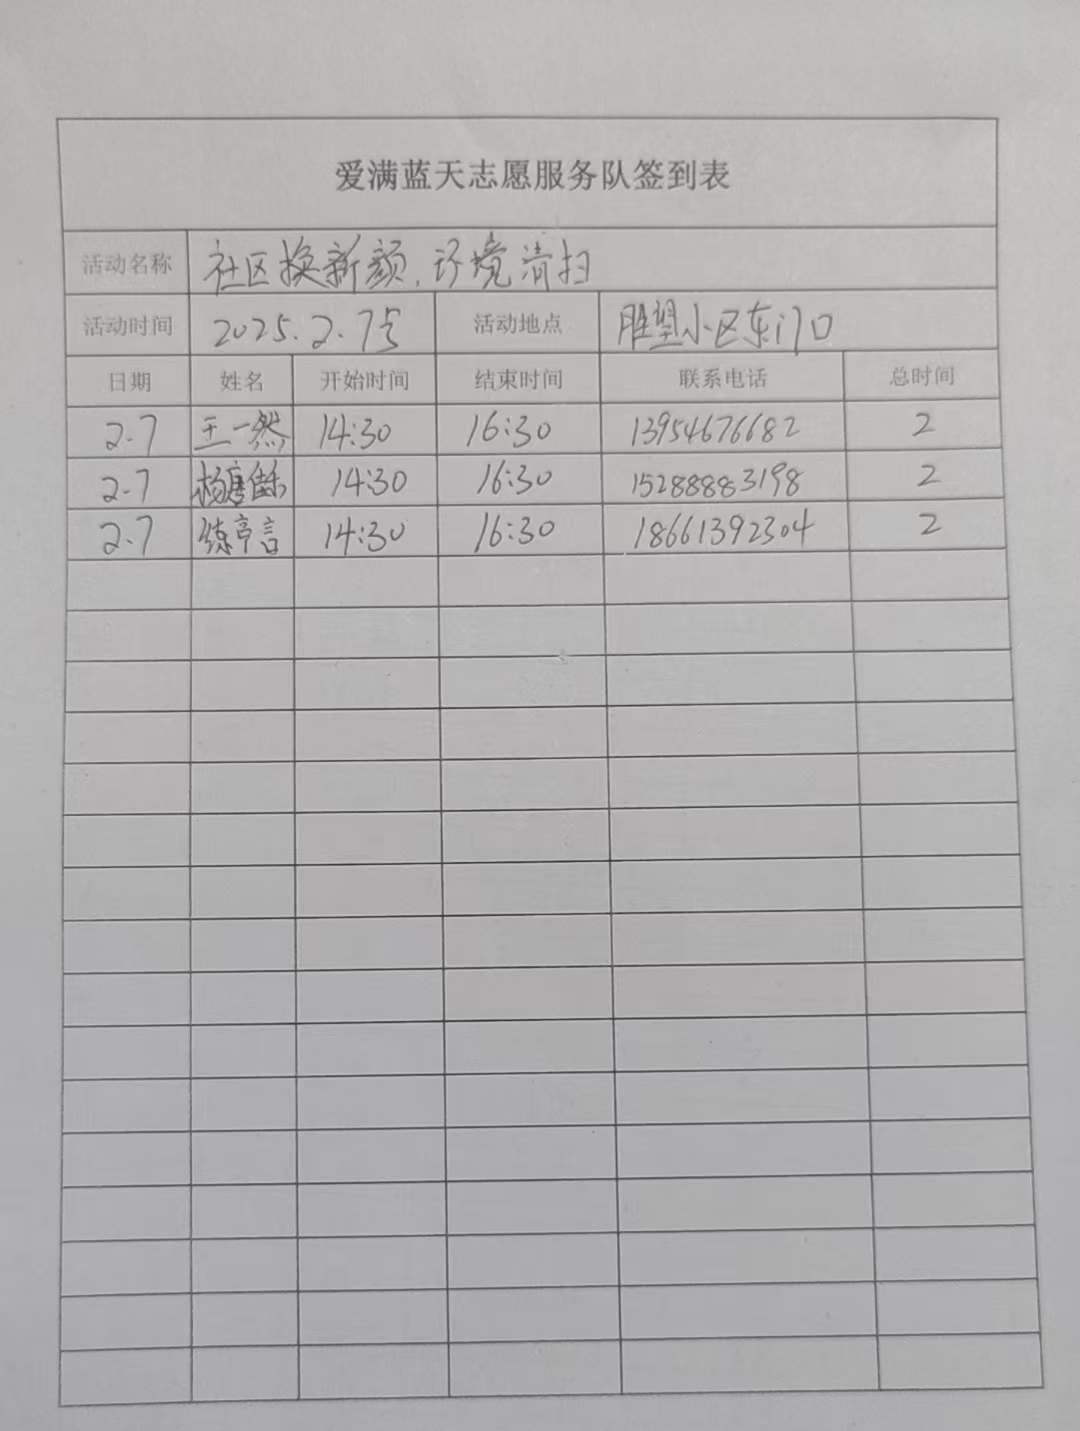 爱满蓝天志愿服务队签到表
活动名称 社区换新颜,环境清扫
活动时间 2025.2.7号 活动地点 胜望小区东门口
日期 姓名 开始时间 结束时间 联系电话 总时间
2.7 王一然 14:30 16:30 13954676682 2
2.7 杨 14:30 16:30 15288883198 2
2.7 言 14:30 16:30 18661392304 2